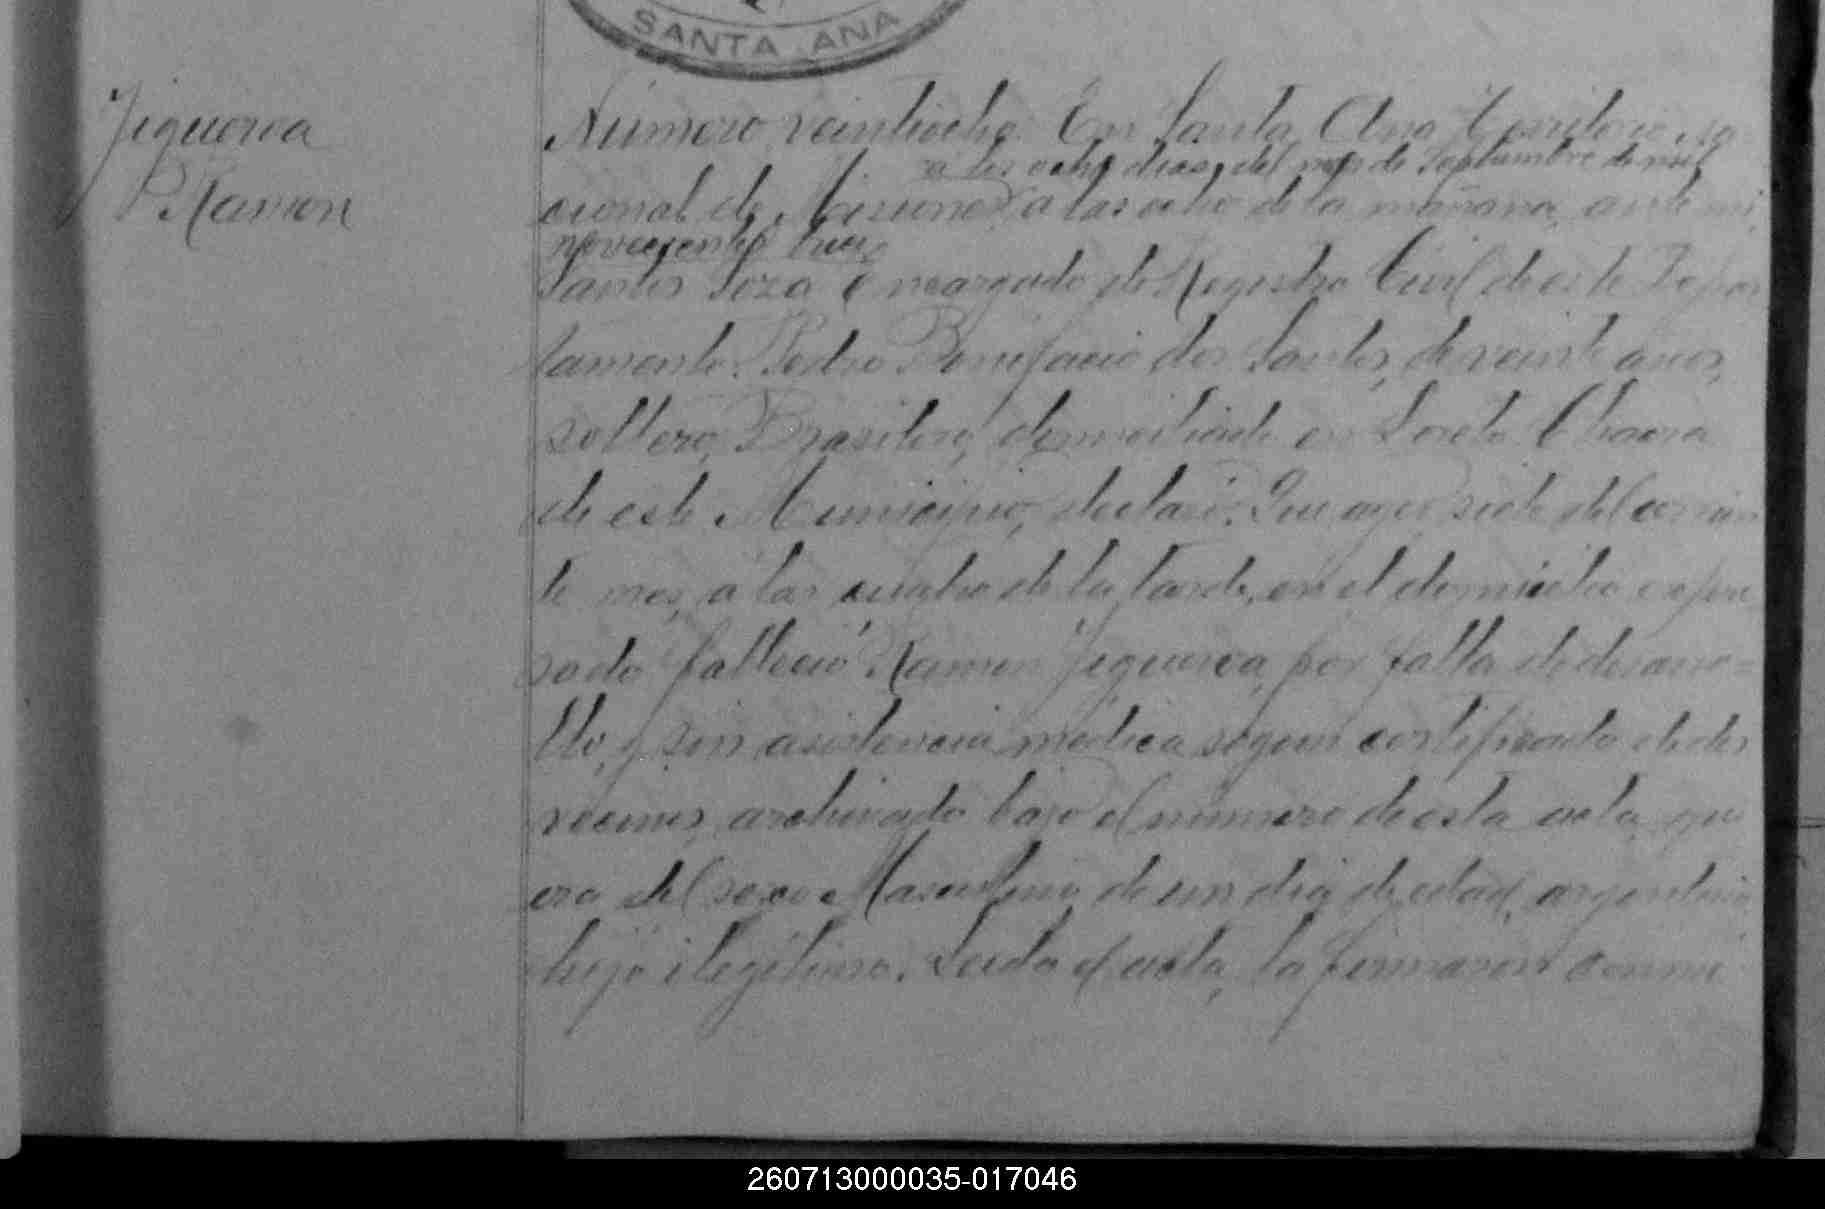 SANTA ANA
Figueroa
Ramon
Número veintiocho. En Santa Ana Territorio na-
a los ocho dias, del mes de Septiembre de mil
cional de Misiones a las ocho de la mañana, ante mi,
novecientos
Santos Soza Encargado del Registro Civil de este Depar
tamento. Pedro Bonifacio dos Santos, de veinte años,
soltero, Brasilero, domiciliado en Loreto Chacra
de este Municipio, declaró: Que ayer siete del corrien
te mes, a las cuatro de la tarde, en el domicilio expre
sado falleció Ramon Figueroa, por falta de desarro-
llo, y sin asistencia médica segun certificado de dos
vecinos, archivado bajo el número de esta acta, que
era del sexo Masculino, de un dia de edad, argentino,
hijo ilegítimo. Leida el acta, la firmaron conmi
260713000035-017046